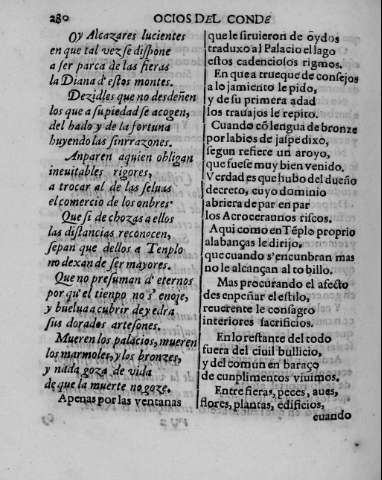 280 OCIOS DEL CONDE
Oy Alcazares lucientes
en que tal vez se dispone
a ser parca de las fieras
la Diana d'estos montes.
Dezidles que no desdeñen
los que a su piedad se acogen,
del hado y de la fortuna
huyendo las sinrrazones.
Anparen aquien obligan
ineuitables rigores,
a trocar al de las seluas
el comercio de los onbres.
Que si de chozas a ellos
las distancias reconocen,
sepan que dellos a Tenplo
no dexan de ser mayores.
Que no presuman d'eternos
por qu'el tienpo no s'enoje,
y buelua a cubrir de yedra
sus dorados artesones.
Mueren los palacios, mueren
los marmoles, y los bronzes,
y nada goza de vida
de que la muerte no goze.
Apenas por las ventanas
que le siruieron de òydos
traduxo al Palacio el lago
estos cadenciosos rigmos.
En que a trueque de consejos
alojamiento le pido,
y de su primera adad
los trauajos le repito.
Cuando cõ lengua de bronze
por labios de jaspe dixo,
segun refiere un arroyo,
que fuese muy bien venido.
Verdad es que hubo del dueño
decreto, cuyo dominio
abriera de par en par
los Acroceraunios riscos.
Aqui como en Tẽplo proprio
alabanças le dirijo,
que cuando s'encunbran mas
no le alcançan al tobillo.
Mas procurando el afecto
desenpeñar el estilo,
reuerente le consagro
interiores sacrificios.
En lo restante del todo
fuera del ciuil bullicio,
y del comun en baraço
de cunplimentos viuimos.
Entre fieras, peces, aues,
flores, plantas, edificios,
cuando